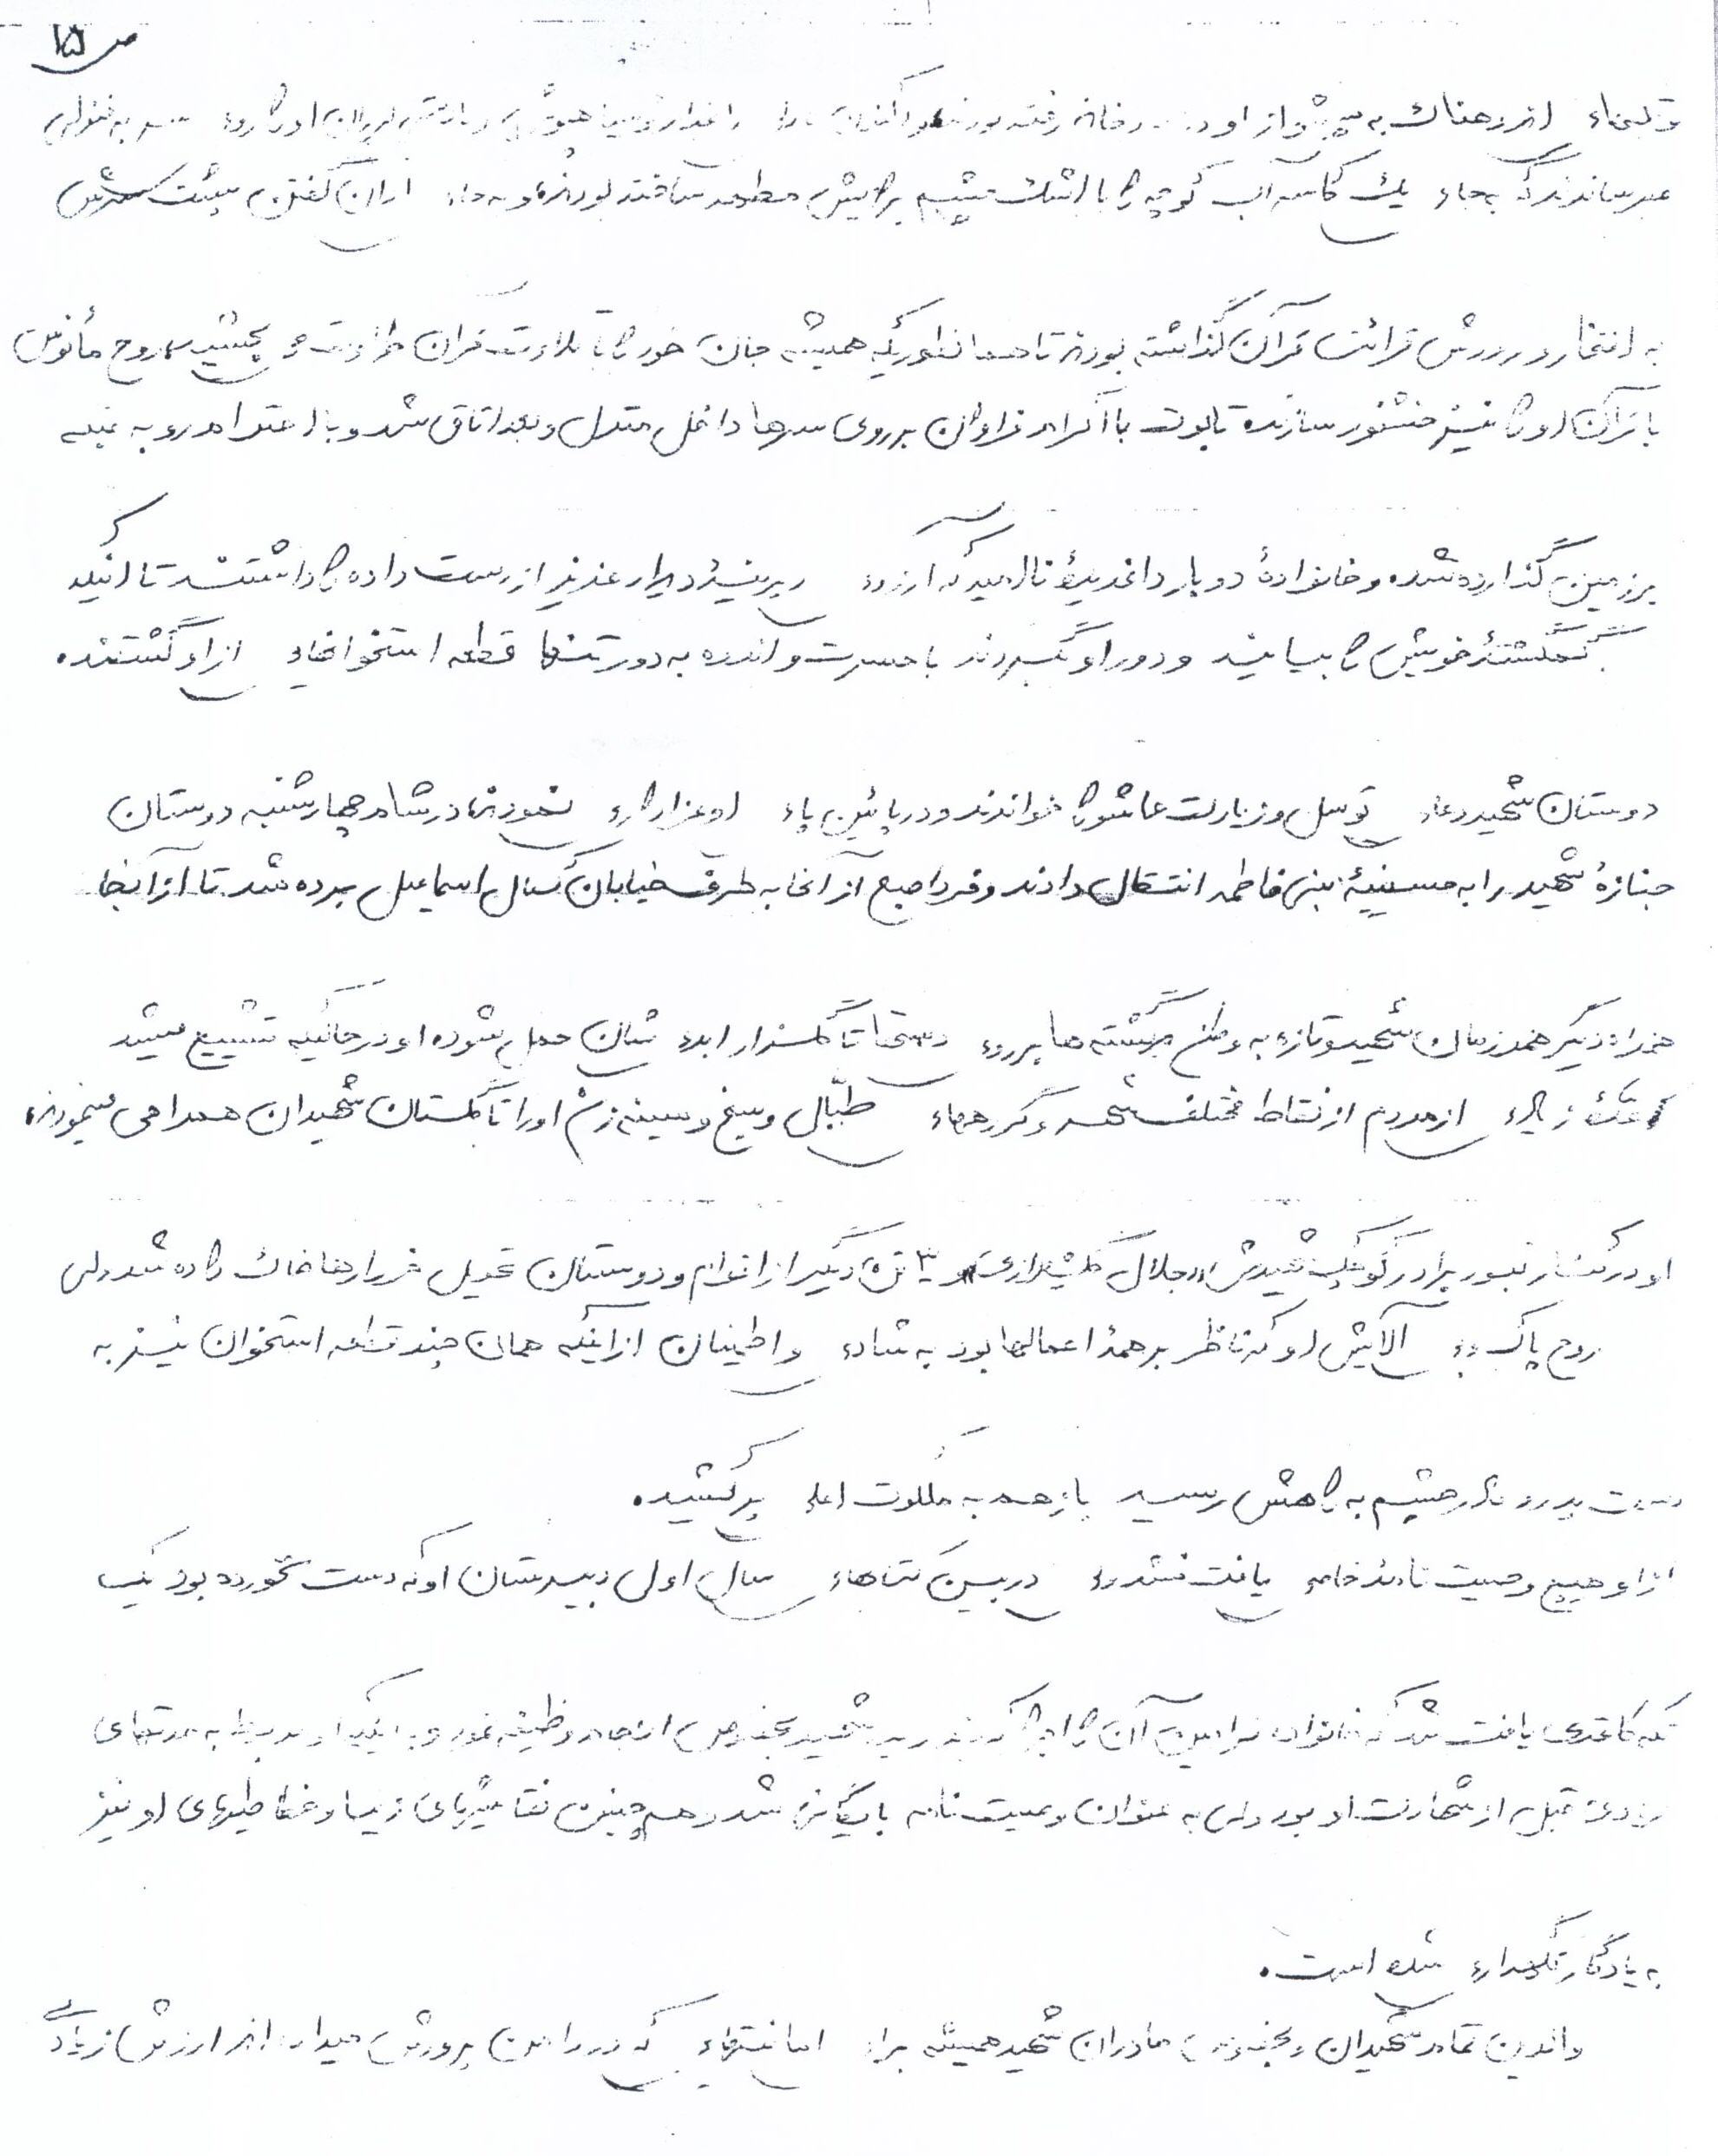 ص ۱۵
اندوهناک به پیشواز او رفته بودند
میرساندند که بجای یک کاسه آب کوچه را با اشک چشم برایش مطهر ساخته بودند و بجای اذان گفتن پشت سرش
به افتخار ورودش قرائت قرآن گذاشته بودند تا همانطوریکه همیشه جان خود را با تلاوت قرآن طراوت می بخشید روح مأنوس
با قرآن او را نیز خشنود سازند تابوت با اکرام فراوان بر روی سرها داخل منزل و بعد اتاق شد و با احترام رو به قبله
بر زمین گذارده شد و خانوادهٔ دوبار داغدیدهٔ ناامید که آرزوی دیرینهٔ دیدار عزیز از دست داده را داشتند تا اینکه
گمگشتهٔ خویش را بیابند و دور او گیرند با حسرت و اندوه به دور تنها قطعه استخوانهای از او گشتند.
دوستان شهید دعای توسل و زیارت عاشورا خواندند و در پائین پای او عزاداری نمودند در شام چهارشنبه دوستان
جنازهٔ شهید را به حسینیهٔ بنی فاطمه انتقال دادند و فردا صبح از آنجا به طرف خیابان کمال اسماعیل برده شد تا از آنجا
همراه دیگر همرزمان شهید و تازه به وطن برگشته ها بر روی دستها تا گلزار ابدی شان حمل شود. او در حالیکه تشییع میشد
زیادی از مردم از نقاط مختلف شهر و گروههای طبّال و سنج و سینه زن او را تا گلستان شهیدان همراهی مینمودند
او در کنار قبور برادر کوچک شهیدش جلال و ۳ تن دیگر از اقوام و دوستان تحویل خاک داده شد ولی
روح پاک و بی آلایش او که ناظر بر همهٔ اعمالها بود به شادی و اطمینان از اینکه همان چند قطعه استخوان نیز به
دست پدر و مادر چشم به راهش رسید باز هم به ملکوت اعلی پر کشید.
از او هیچ وصیت نامهٔ خاصی یافت نشد ولی در بین کتابهای سال اول دبیرستان او که دست نخورده بود یک
تکه کاغذی یافت شد که خانواده آن را شهید بخصوص انجام وظیفه نمودن اینکه مربوط به مدتهای
زیادی قبل از شهادت او بود ولی به عنوان وصیت نامه بایگانی شد و هم چنین نقاشیهای زیبا و خطاطیهای او نیز
به یادگار نگهداری شده است.
والدین تمام شهیدان و بخصوص مادران شهید همیشه برای امانتهای که در دامن پرورش میدادند ارزش زیادی